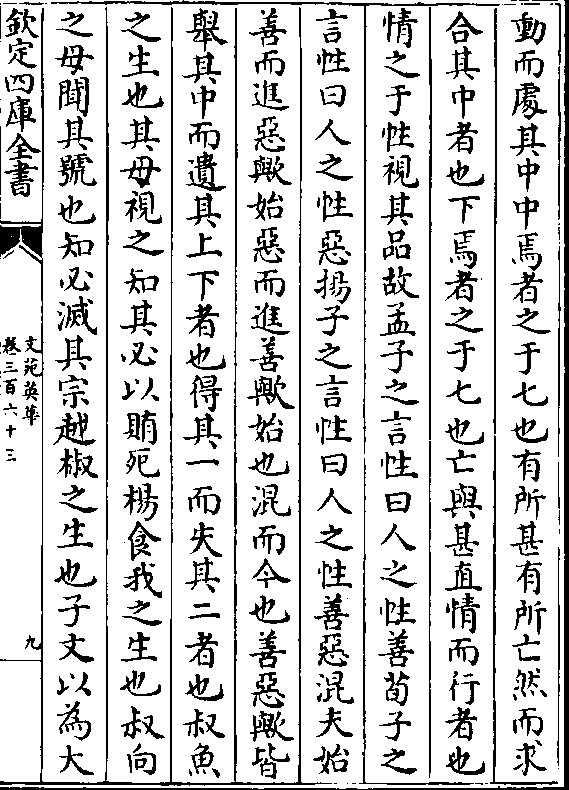 動而處其中中焉者之于七也有所甚有所亡然而求
合其中者也下焉者之于七也亡與甚直情而行者也
情之于性視其品故孟子之言性曰人之性善荀子之
言性曰人之性惡揚子之言性曰人之性善惡混夫始
善而進惡歟始惡而進善歟始也混而今也善惡歟皆
舉其中而遺其上下者也得其一而失其二者也叔魚
之生也其母視之知其必以賄死楊食我之生也叔向
之母聞其號也知必滅其宗越椒之生也子文以為大
欽定四庫全書
文苑英華
卷三百六十三
九